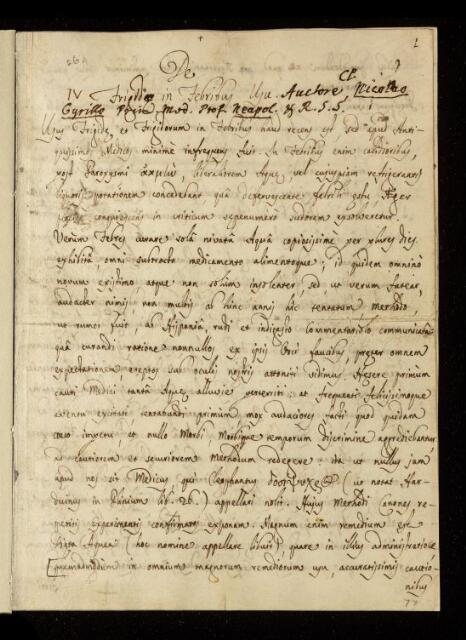 De
IV Frigidæ in Febribus Usu. Auctore Cl. Nicolao
Cyrillo Med. Prof. Neapol. & R.S.S.
Usus Frigidæ, et Frigidorum in Febribus haud recens est, sed apud Anti-
quissimos Medicos minime infrequens fuit. In Febribus enim
post Paroxysmi liberaliorem Aquæ, vel cujuspiam refrigerantis
liquoris potationem concedebant, qua defervescente febrili æstu,
congruens in criticum sæpenumero sudorem exsolveretur.
Verùm Febres curare solâ nivatâ Aquâ copiosissimè per plures dies
exhibitâ, omni subtracto medicamento alimentoque; id quidem omninò
novum existimo atque non solùm insolenter, sed ut verum fatear,
audacter nimis, non multis ab hinc annis hîc tentatum. Methodo,
ut rumor fuit, ab Hispania, rudi et indigesto Commentariolo communicata
quâ curandi ratione nonnullos ex ipsis Orci faucibus, præter omnem
expectationem ereptos sub oculis nostris attoniti vidimus. Hæsere primùm
cauti Medici tantâ Aquæ alluvie perterriti: at frequenti felicissimoque
eventu excitati tentabundi primùm, mox audaciores facti quod quidam
cæco impetu, et nullo Morbi Morbique temporum discrimine aggrediebantur,
ad cautiorem et securiorem Methodum redegere: ita ut nullus jam
apud nos sit Medicus, qui Cleophantus (ut notat Har-
duinus in Plinium lib. 26.) appellari nolit. Hujus Methodi Canones, re-
petitis experimentis confirmatos exponam. Magnum enim remedium est
Diæta Aquea (hoc nomine appellare libuit) quare in illius administratione,
quemadmodum in omnium magnorum remediorum usu, accuratissimis cautio-
nibus